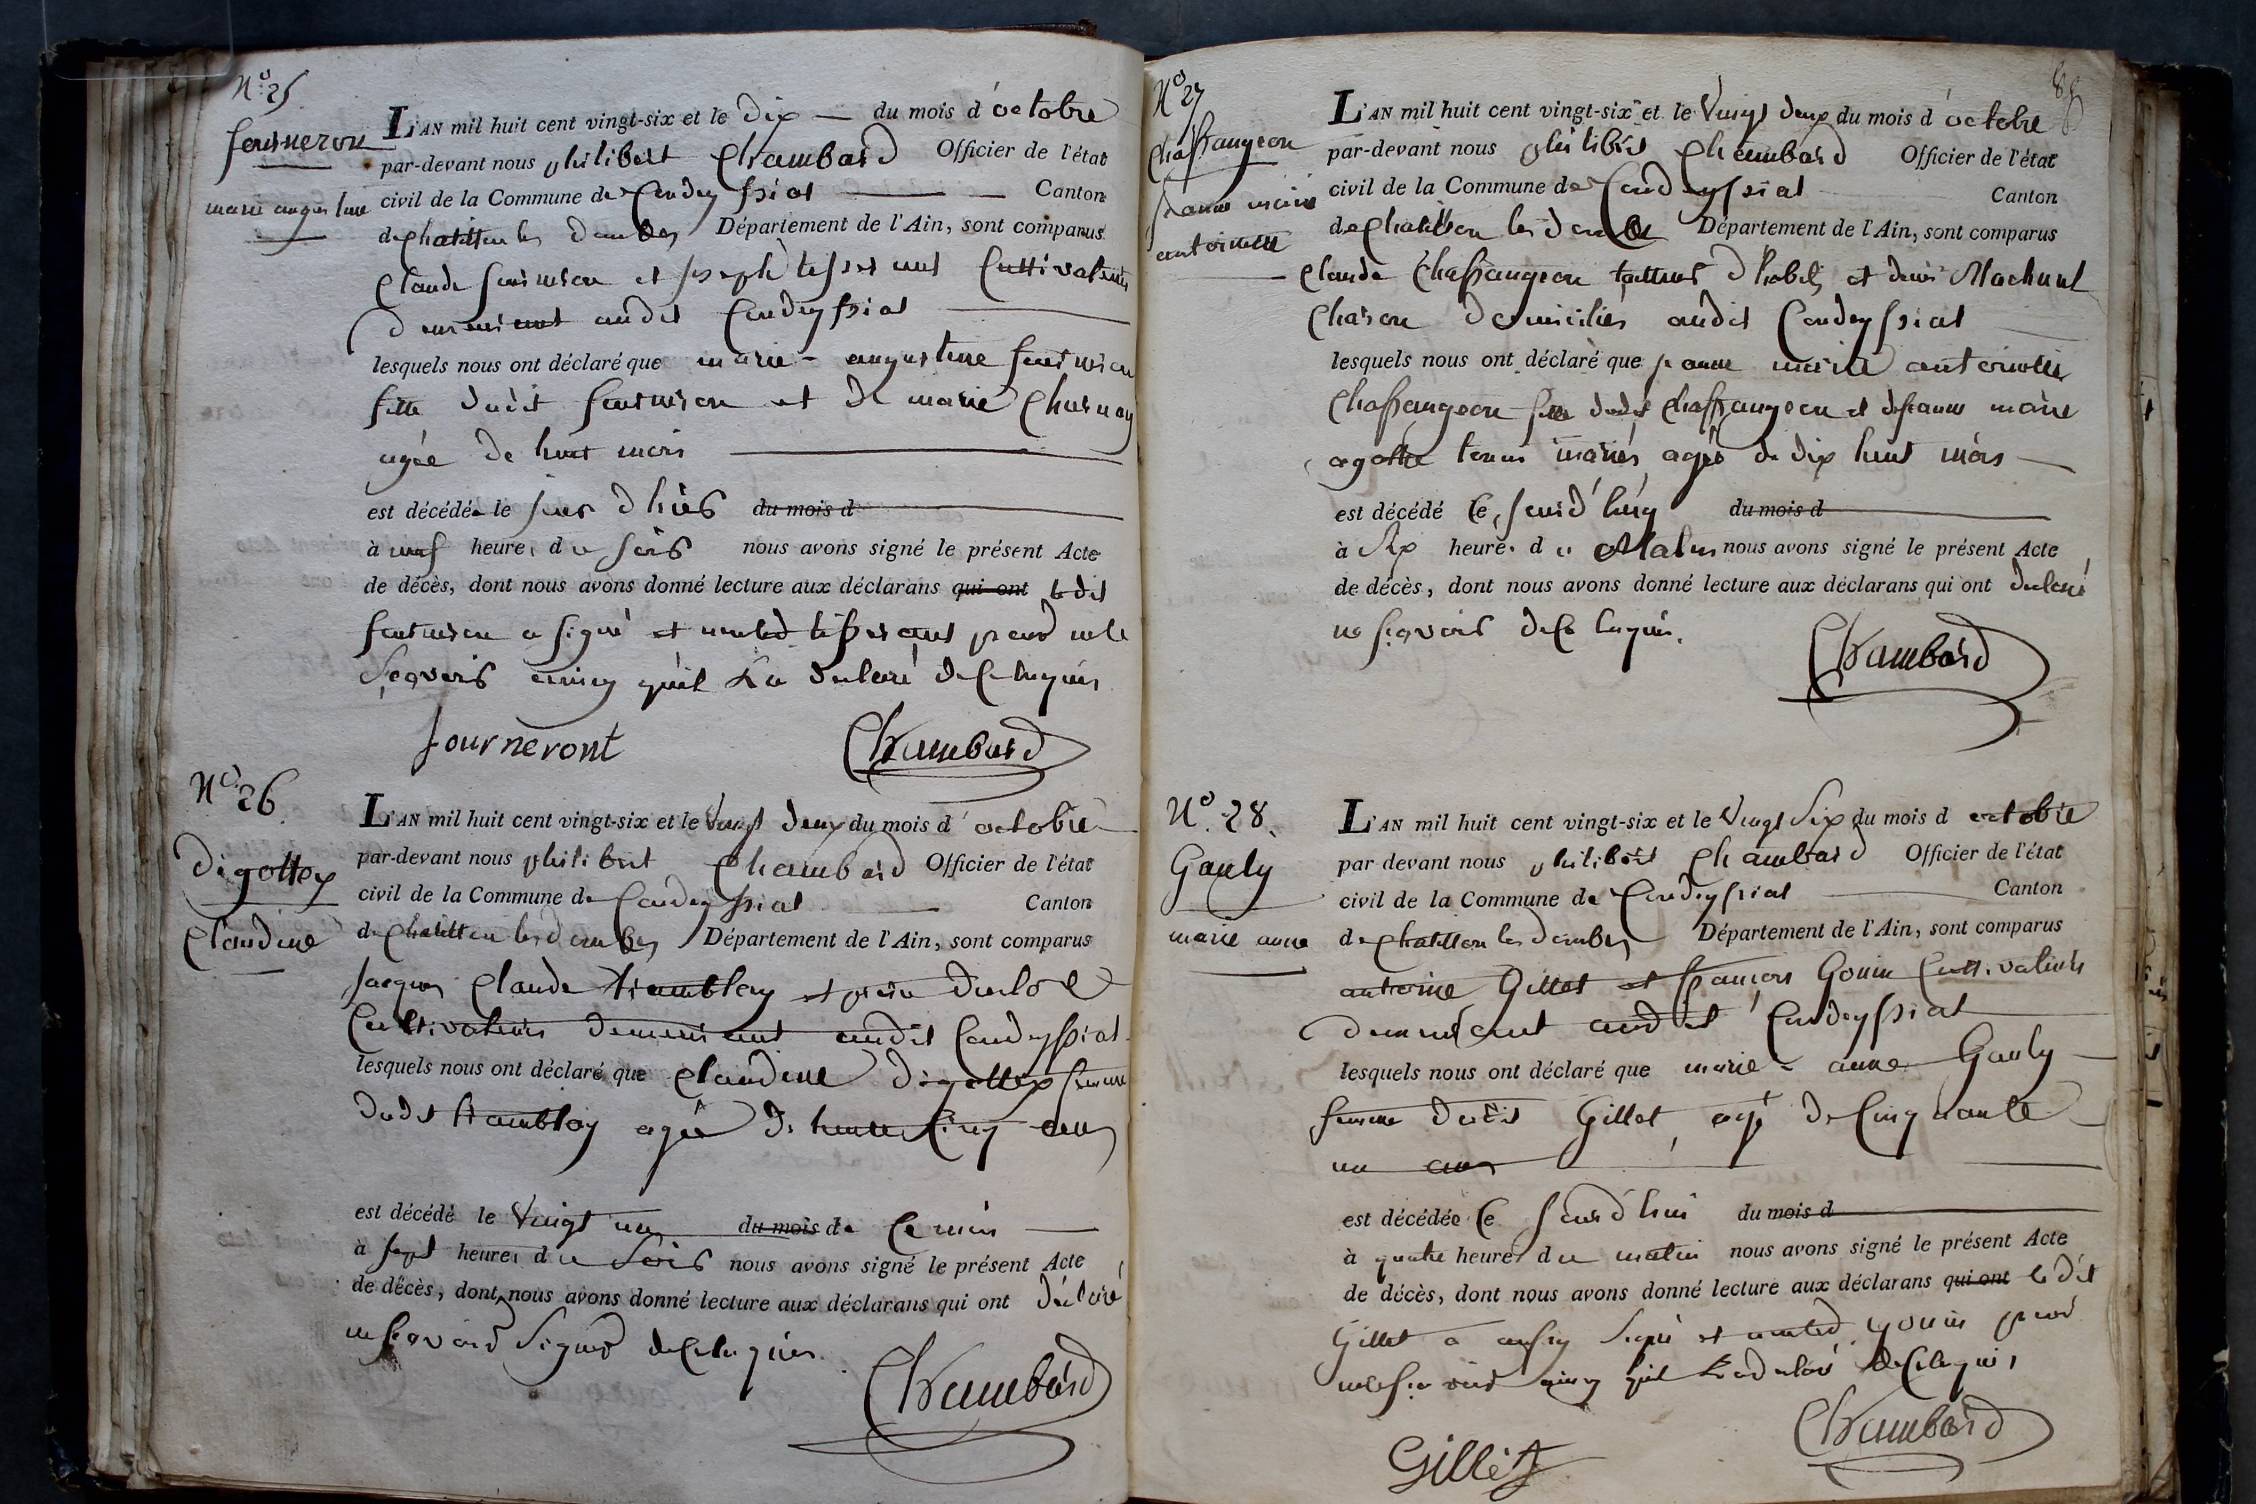 N.º 25
fourneron
marie augustine
L'AN mil huit cent vingt-six et le dix du mois d'octobre
par-devant nous philibert Chambard Officier de l'état
civil de la Commune de Condeyssiat Canton
de chatillon les dombes Département de l'Ain, sont comparus
Claude fourneron et joseph Cultivateurs
demeurant audit Condeyssiat
lesquels nous ont déclaré que marie - augustine fourneron
fille dudit fourneron et de marie Charnay
agée de huit mois
est décédée le jour d'hier du mois d
à neuf heures du soir nous avons signé le présent Acte
de décès, dont nous avons donné lecture aux déclarans qui ont le dit
fourneron a signé et non led pour ne le
sçavoir ainsy qu'il l'a declaré de ce enquis
fourneront Chambard
Nº 26
Digottex
Claudine
L'AN mil huit cent vingt-six et le vingt deux du mois d'octobre
par-devant nous philibert Chambard Officier de l'état
civil de la Commune de Condeyssiat Canton
de chatillon les dombes Département de l'Ain, sont comparus
Jacques Claude tramblay et Duclos
Cultivateurs demeurant audit Condeyssiat
lesquels nous ont déclaré que Claudine digottex femme
dudit tramblay agée de trente cinq ans
est décédé le vingt un du mois de ce mois
à sept heures du soir nous avons signé le présent Acte
de décès, dont nous avons donné lecture aux déclarans qui ont déclaré
ne sçavoir signer de ce enquis.
Chambard
88
Nº 27
Chaffangeon
jeanne marie
antoinette
L'AN mil huit cent vingt-six et le vingt deux du mois d'octobre
par-devant nous philibert Chambard Officier de l'état
civil de la Commune de Condeyssiat Canton
de Chatillon les dombes Département de l'Ain, sont comparus
Claude Chaffangeon tailleur d'habits et denis
Charon domiciliés audit Condeyssiat
lesquels nous ont déclaré que jeanne marie antoinette
Chaffangeon fille dudit Chaffangeon et de jeanne marie
agathe mariés agée de dix huit mois
est décédé ce jourd'huy du mois d
à six heures du Matin nous avons signé le présent Acte
de décès, dont nous avons donné lecture aux déclarans qui ont declaré
ne sçavoir de ce enquis.
Chambard
Nº 28.
Gauly
marie anne
L'AN mil huit cent vingt-six et le vingt six du mois d octobre
par devant nous philibert Chambard Officier de l'état
civil de la Commune de Condeyssiat Canton
de chatillon les dombes Département de l'Ain, sont comparus
antoine Gillet et françois Gonin Cultivateurs
demeurant audit Condeyssiat
lesquels nous ont déclaré que marie - anne Gauly
femme dudit Gillet, agé de Cinquante
un ans
est décédée ce jourd'hui du mois d
à quatre heures du matin nous avons signé le présent Acte
de décès, dont nous avons donné lecture aux déclarans qui ont le dit
Gillet a signé et non led gonin pour
ne le sçavoir ainsy qu'il l'a declaré de ce enquis,
Chambard
Gillet